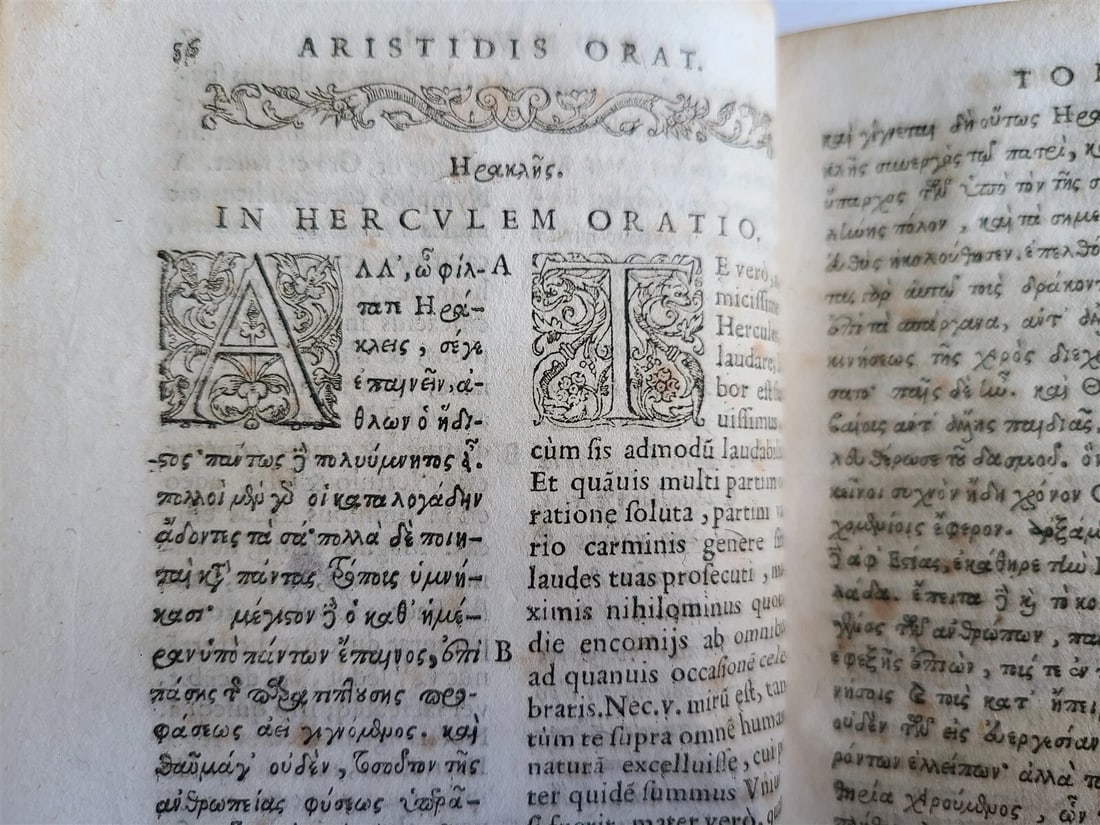 56 ARISTIDIS ORAT.
Ηρακλῆς.
IN HERCVLEM ORATIO.
ΑΛΛ', ὦ φίλ-
τατε Ηρά-
κλεις, σέγε
ἐπαινεῖν, ἆ-
θλων ὁ ἥδι-
στος· πάντως ἢ πολυύμνητος εἶ.
πολλοὶ μὲν γὸ οἱ καταλογάδην
ᾄδοντες τὰ σά· πολλὰ δὲ ποιη-
ταὶ κτ' πάντας τρόπους ὑμνή-
κασι· μέγιστον ἢ ὁ καθ' ἡμέ-
ραν ὑπὸ πάντων ἔπαινος, ἐπὶ
πάσης τ παραπιπτύσης προ-
φάσεως ἀεὶ γιγνόμενος. καὶ
θαῦμάγ' οὐδὲν, τοσοῦτον τῆς
ἀνθρωπείας φύσεως ὑπερᾶ-
A
B
TE verò,
miciſſime
Hercule,
laudare,
bor eſt
uiſſimus
cùm ſis admodũ laudabi
Et quãuis multi partim
ratione ſoluta, partim
rio carminis genere
laudes tuas proſecuti,
ximis nihilominus quo
die encomijs ab omnib
ad quanuis occaſionẽ cele
bratis. Nec. v. mirũ eſt, tan
tùm te ſupra omnẽ huma
naturã excelluiſſe, cui p
ter quidẽ ſummus Vniu
ſi fuerit, mater verò,
TO
καὶ γίγνεται δὴ οὕτως Ηρα
κλῆς συνεργὸς τῷ πατρὶ,
ὕπαρχος τῆς ὑπὸ τὸν τῆς σ
πόλον, καὶ τὰ σημε
ἠκολούθησεν. ἐπελθό
αὐτῷ τοῖς δράκον
σπάργανα, αὐτ'
κινήσεως τῆς χειρὸς διεχ
παῖς δὲ ὤν. καὶ Θ
παιδιᾶς,
δασμοῦ.
κεῖνοι συχνὸν ἤδη χρόνον
ἔφερον. ἀρξάμ
ἀφ' Ἑστίας, ἐκάθηρε τὴν
λάδα. ἔπειτα ἢ κὶ τὸ κο
τῶν ἀνθρώπων, πα
ἐφεξῆς ἐπιὼν,
νήσοις τοῖς κατ' ἤπει
οὐδὲν τῶν εἰς εὐεργεσίαν
ρόντων ἐλλείπων· ἀλλὰ τ
χρούμενος, ὧν